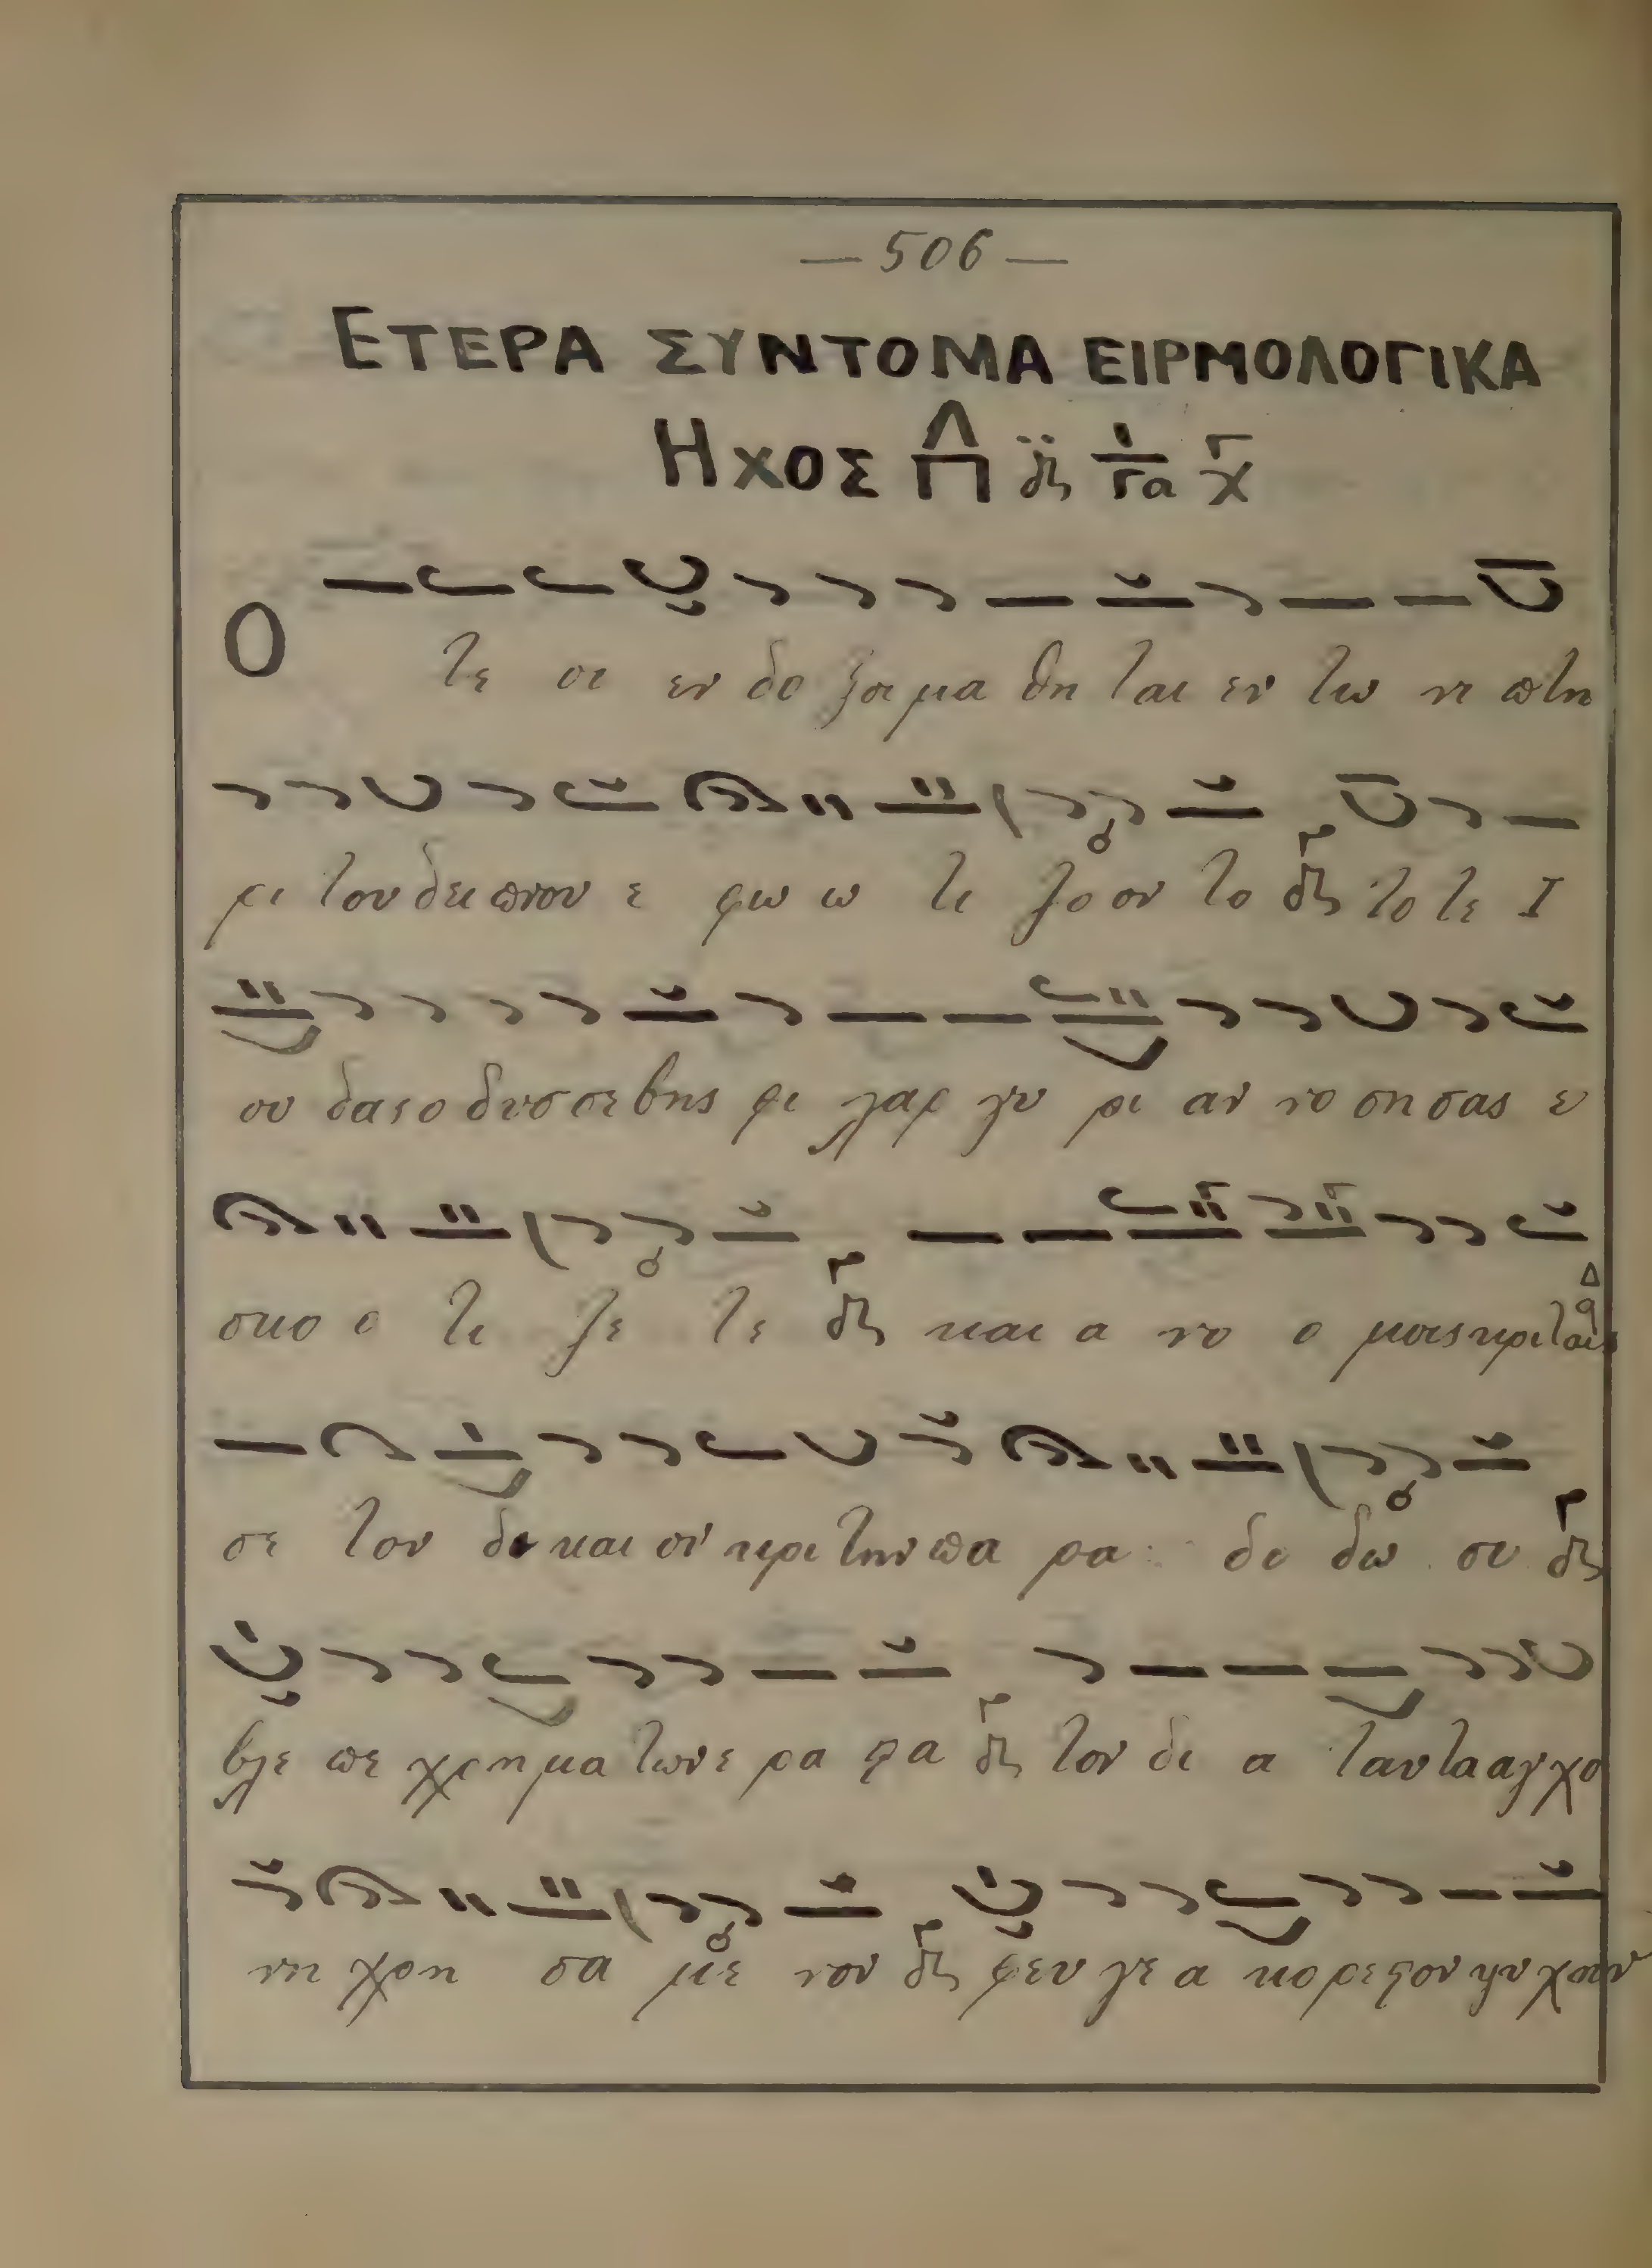 — 506 —
ΕΤΕΡΑ ΣΥΝΤΟΜΑ ΕΙΡΜΟΛΟΓΙΚΑ
ΗΧΟΣ Π Γα χ
Ο τε οι εν δο ξοι μα θη ται εν τω νι πτη
ρι του δει πνου ε φω ω τι ζο ον το το τε Ι
ου δας ο δυσ σε βης φι λαρ γυ ρι αν νο ση σας ε
σκο ο τι ζε τε και α νο ο μοις κρι ταις
σε τον δι και ον κρι την πα ρα δι δω σι
βλε πε χρη μα των ε ρα στα τον δι α ταυ τα αγ χο
νη χρη σα με νον φευ γε α κο ρε στον ψυ χην